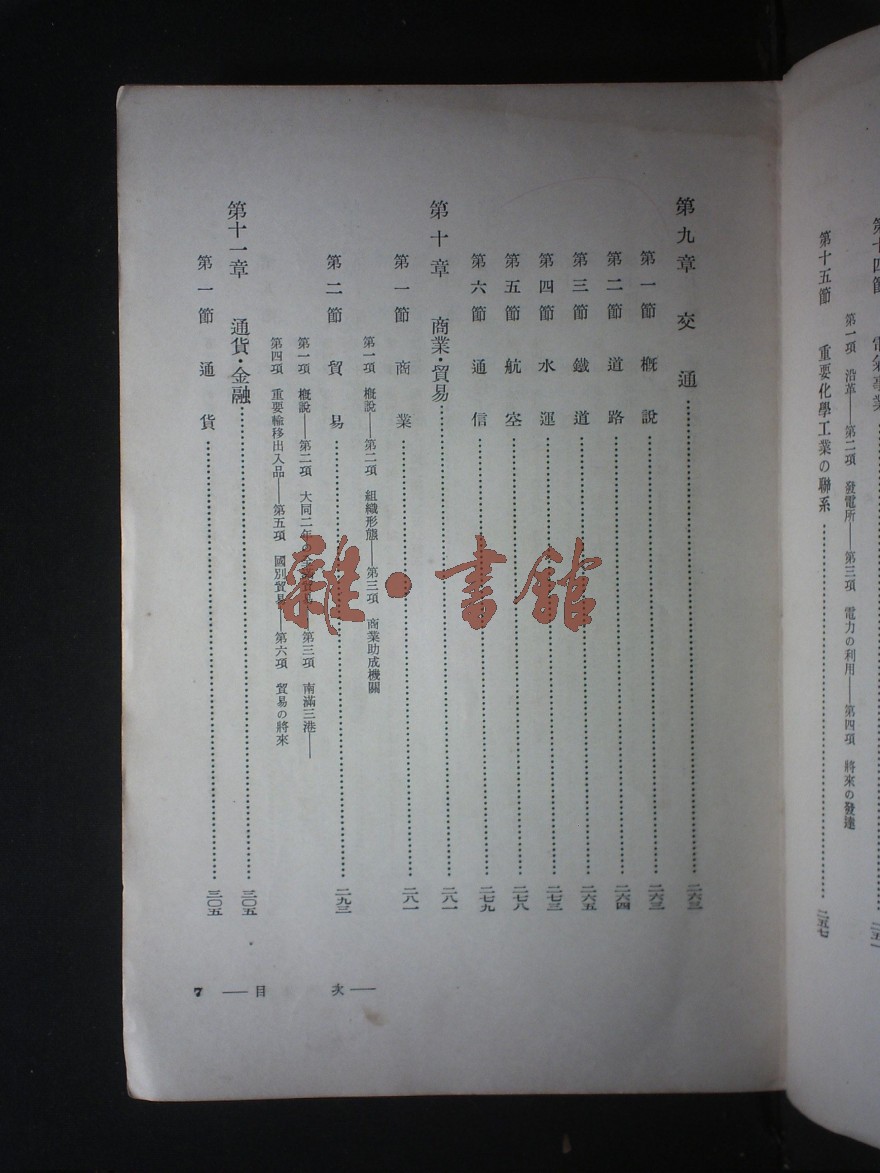 第十四節 電氣事業……二五一
第一項 沿革——第二項 發電所——第三項 電力の利用——第四項 將來の發達
第十五節 重要化學工業の聯系……二五七
第九章 交通……二六三
第一節 概説……二六三
第二節 道路……二六四
第三節 鐵道……二六五
第四節 水運……二七三
第五節 航空……二七八
第六節 通信……二七九
第十章 商業・貿易……二八一
第一節 商業……二八一
第一項 概説——第二項 組織形態——第三項 商業助成機關
第二節 貿易……二九三
第一項 概説——第二項 大同二年の 第三項 南滿三港——
第四項 重要輸移出入品——第五項 國別貿易——第六項 貿易の將來
第十一章 通貨・金融……三〇五
第一節 通貨……三〇五
7 —— 目次 ——
雜・書館